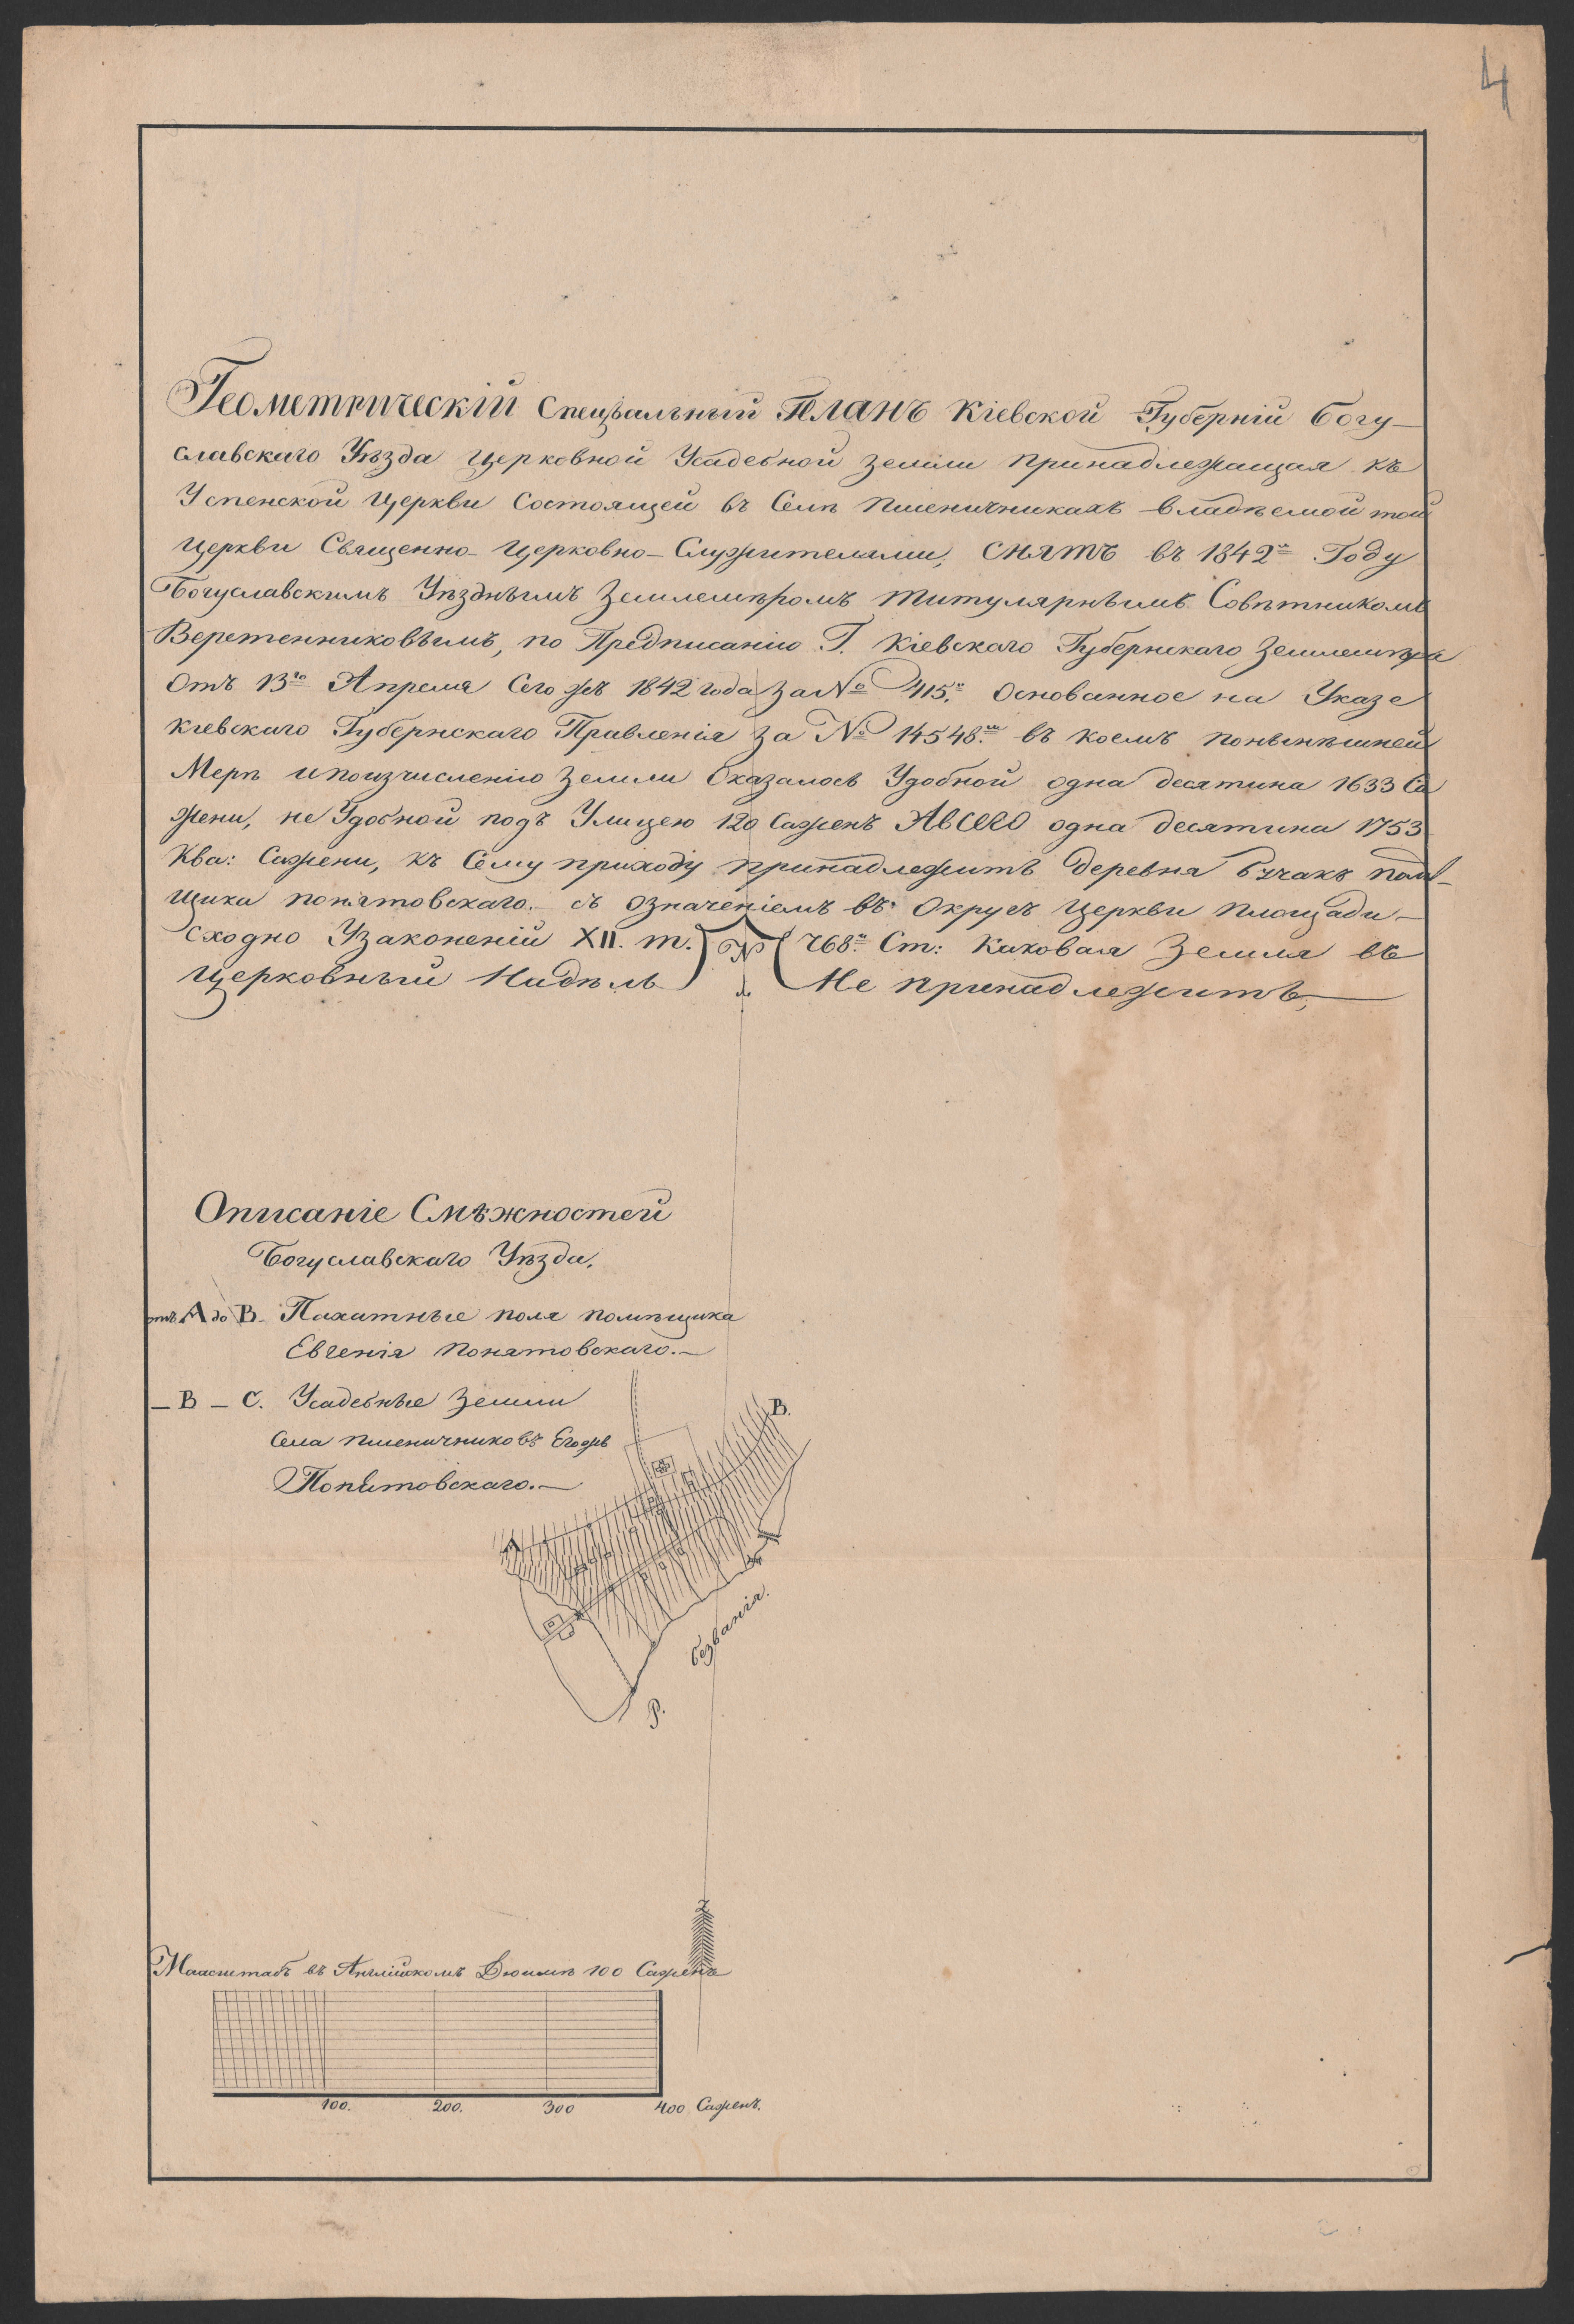 4
Геометрическій Спецѣальный Планъ Кіевской Губерніи Богу-
славскаго Уѣзда Церковной Усадебной Земли принадлежащая къ
Успенской Церкви Состоящей въ Селѣ Пшеничникахъ владѣемой той
Церкви Священно-Церковно-Служителями, снятъ въ 1842м Году
Богуславскимъ Уѣзднымъ Землемѣромъ Титулярнымъ Совѣтникомъ
Веретенниковымъ, по Предписанію Г. Кіевскаго Губернскаго Землемѣра
Отъ 13го Апреля Сего жъ 1842 года За № 415. Основанное на Указе
Кіевскаго Губернскаго Правленія За № 14548. въ коемъ понынѣшней
Мерѣ и поизчисленію Земли Оказалось Удобной одна десятина 1633 Са
жени, не Удобной подъ Улицею 120 Саженъ Авсего одна десятина 1753
Ква: Сажени, къ Сему приходу принадлежитъ деревня Бучакъ помѣ-
щика понятовскаго.- съ означеніемъ въ Округъ Церкви площади-
сходно Узаконеній XII. т. № 768. Ст: Каковая Земля въ
Церковный Надѣлъ Не принадлежитъ,
Описаніе Смѣжностей
Богуславскаго Уѣзда.
отъ A до B- Пахатные поля помѣщика
Евгенія Понятовскаго.-
- B - C. Усадебные Земли
Села Пшеничниковъ Егожъ
Понятовскаго.-
B.
A
безванія.
Р.
Маасштабъ въ Англійскомъ Дюимѣ 100 Саженъ
100. 200. 300 400 Саженъ.